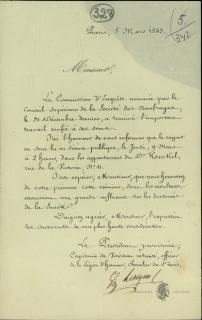 328
5
342
Paris, 5 Mars 1843.
Monsieur,
La Commission d'Enquête nommée par le
Conseil Supérieur de la Société des Naufrages
le 31 Décembre dernier, a terminé l'important
travail confié à ses soins.
J'ai l'honneur de vous informer que le rapport
en sera lu en séance publique, le Jeudi, 9 Mars
à 2 heures, dans les appartements du Dr
rue de la Victoire, No
J'ose espérer, Monsieur, que vous honorerez
de votre présence cette réunion, dont les résultats
exerceront une grande influence sur les destinées
de la Société.
Daignez agréer, Monsieur, l'expression
des sentiments de ma plus haute considération.
Le Président provisoire,
Capitaine de Vaisseau retraité, officier
de la Légion d'honneur, Chevalier de St Louis,